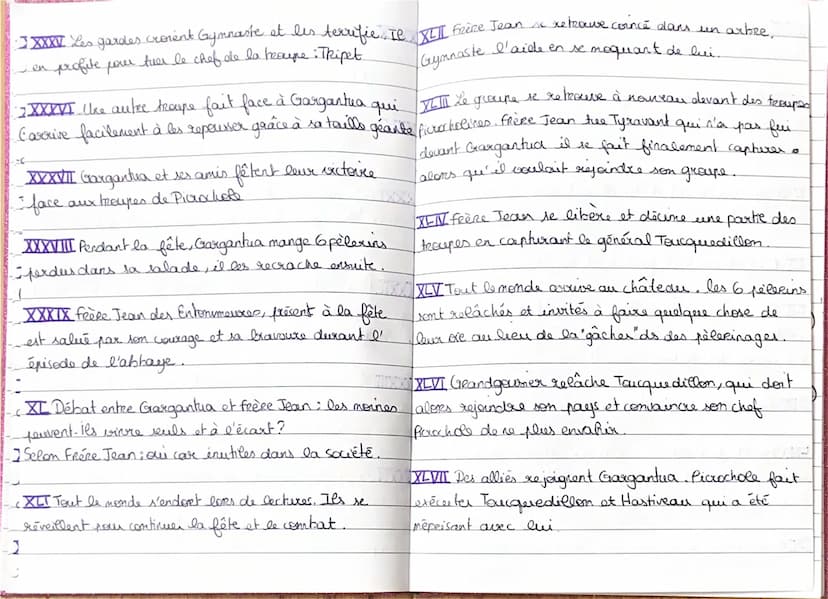 XXXV Les gardes croient Gymnaste et les terrifie. Il
en profite pour tuer le chef de la troupe : Tripet
XXXVI Une autre troupe fait face à Gargantua qui
arrive facilement à les repousser grâce à sa taille géante
XXXVII Gargantua et ses amis fêtent leur victoire
face aux troupes de Picrochole
XXXVIII Pendant la fête, Gargantua mange 6 pèlerins
perdus dans sa salade, il les recrache ensuite.
XXXIX Frère Jean des Entommeures, présent à la fête
est salué par son courage et sa bravoure durant l'
épisode de l'abbaye.
XL Débat entre Gargantua et Frère Jean : les moines
peuvent-ils vivre seuls et à l'écart ?
Selon Frère Jean ; oui car inutiles dans la société.
XLI Tout le monde s'endort lors de lectures. Ils se
réveillent pour continuer la fête et le combat.
XLII Frère Jean se retrouve coincé dans un arbre.
Gymnaste l'aide en se moquant de lui.
XLIII Le groupe se retrouve à nouveau devant des troupes
picrocholines. Frère Jean tue Tyravant qui n'a pas fui
devant Gargantua il se fait finalement capturer
alors qu'il voulait rejoindre son groupe.
XLIV Frère Jean se libère et décime une partie des
troupes en capturant le général Toucquedillon.
XLV Tout le monde arrive au château. les 6 pèlerins
sont relâchés et invités à faire quelque chose de
leur vie au lieu de la "gâcher" ds des pèlerinages.
XLVI Grandgousier relâche Toucquedillon, qui doit
alors rejoindre son pays et convaincre son chef
Picrochole de ne plus envahir.
XLVII Des alliés rejoignent Gargantua. Picrochole fait
exécuter Toucquedillon et Hastiveau qui a été
méprisant avec lui.